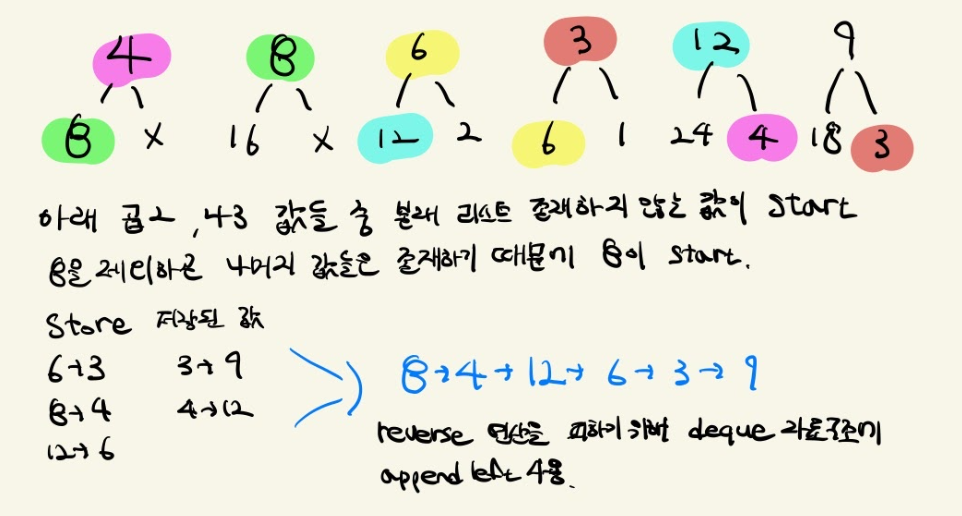 4 8 6 3 12 9
8 x 16 x 12 2 6 1 24 4 18 3
아래 곱2, 나3 값들 중 본래 리스트 존재하지 않는 값이 start
8을 제외하고 나머지 값들은 존재하기 때문에 8이 start.
Store 저장된 값
6→3 3→9
8→4 4→12
12→6
8→4→12→6→3→9
reverse 연산을 피하기 위해 deque 자료구조에
append left 사용.